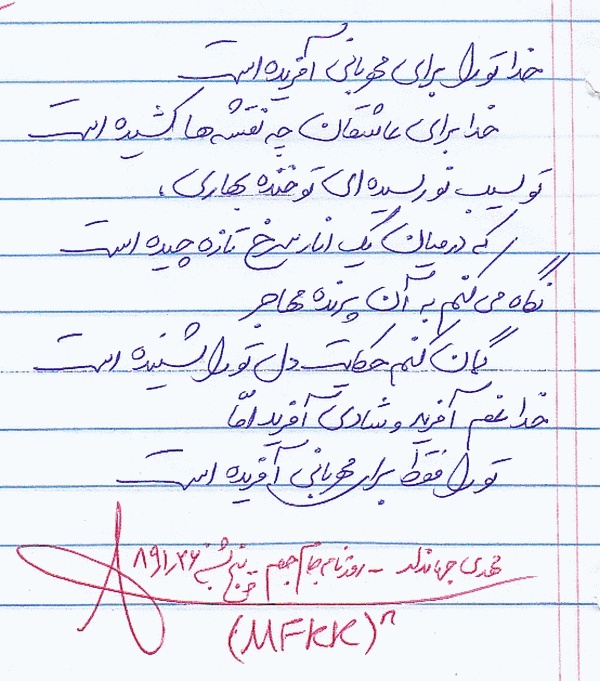 خدا تو را برای مهربانی آفریده است
خدا برای عاشقان چه نقشه ها کشیده است
تو سیب نورسیده ای تو خنده بهاری،
که در میان یک انار سرخ تازه چیده است
نگاه می کنم به آن پرنده مهاجر
گمان کنم حکایت دل تو را شنیده است
خدا غم آفرید و شادی آفرید امّا
تو را فقط برای مهربانی آفریده است
مهدی جهاندار - روزنامه جام جم پنج شنبه ۸۹/۱/۲۶
(MFKK)ⁿ